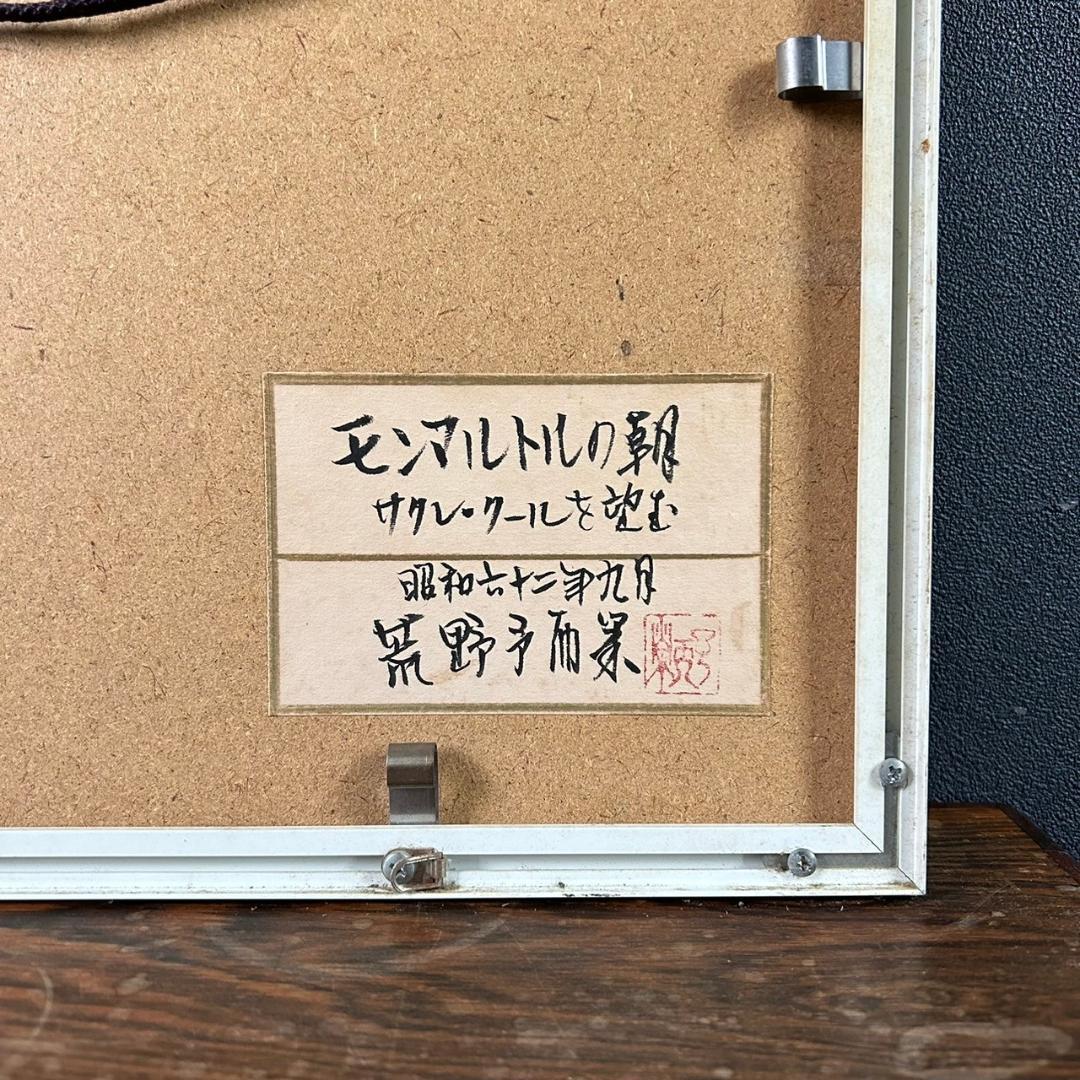 モンマルトルの朝
サクレ・クールを望む
昭和六十二年九月
荒野予而業